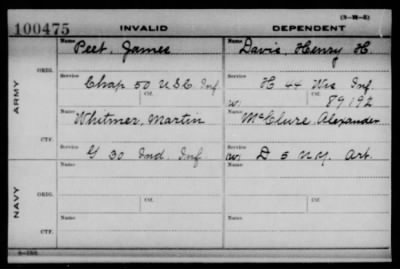 (3-M-5)
100475 INVALID DEPENDENT
Name Peet, James Name Davis, Henry H.
ARMY ORIG. Service Chap 50 U.S.C. Inf Service H 44 Wis Inf
Ctf. W Ctf. 89192
Name Whitmer, Martin Name McClure Alexander
CTF. Service G 30 Ind. Inf Service W D 5 N.Y. Art.
NAVY ORIG.
Ctf. Ctf.
Name Name
CTF.